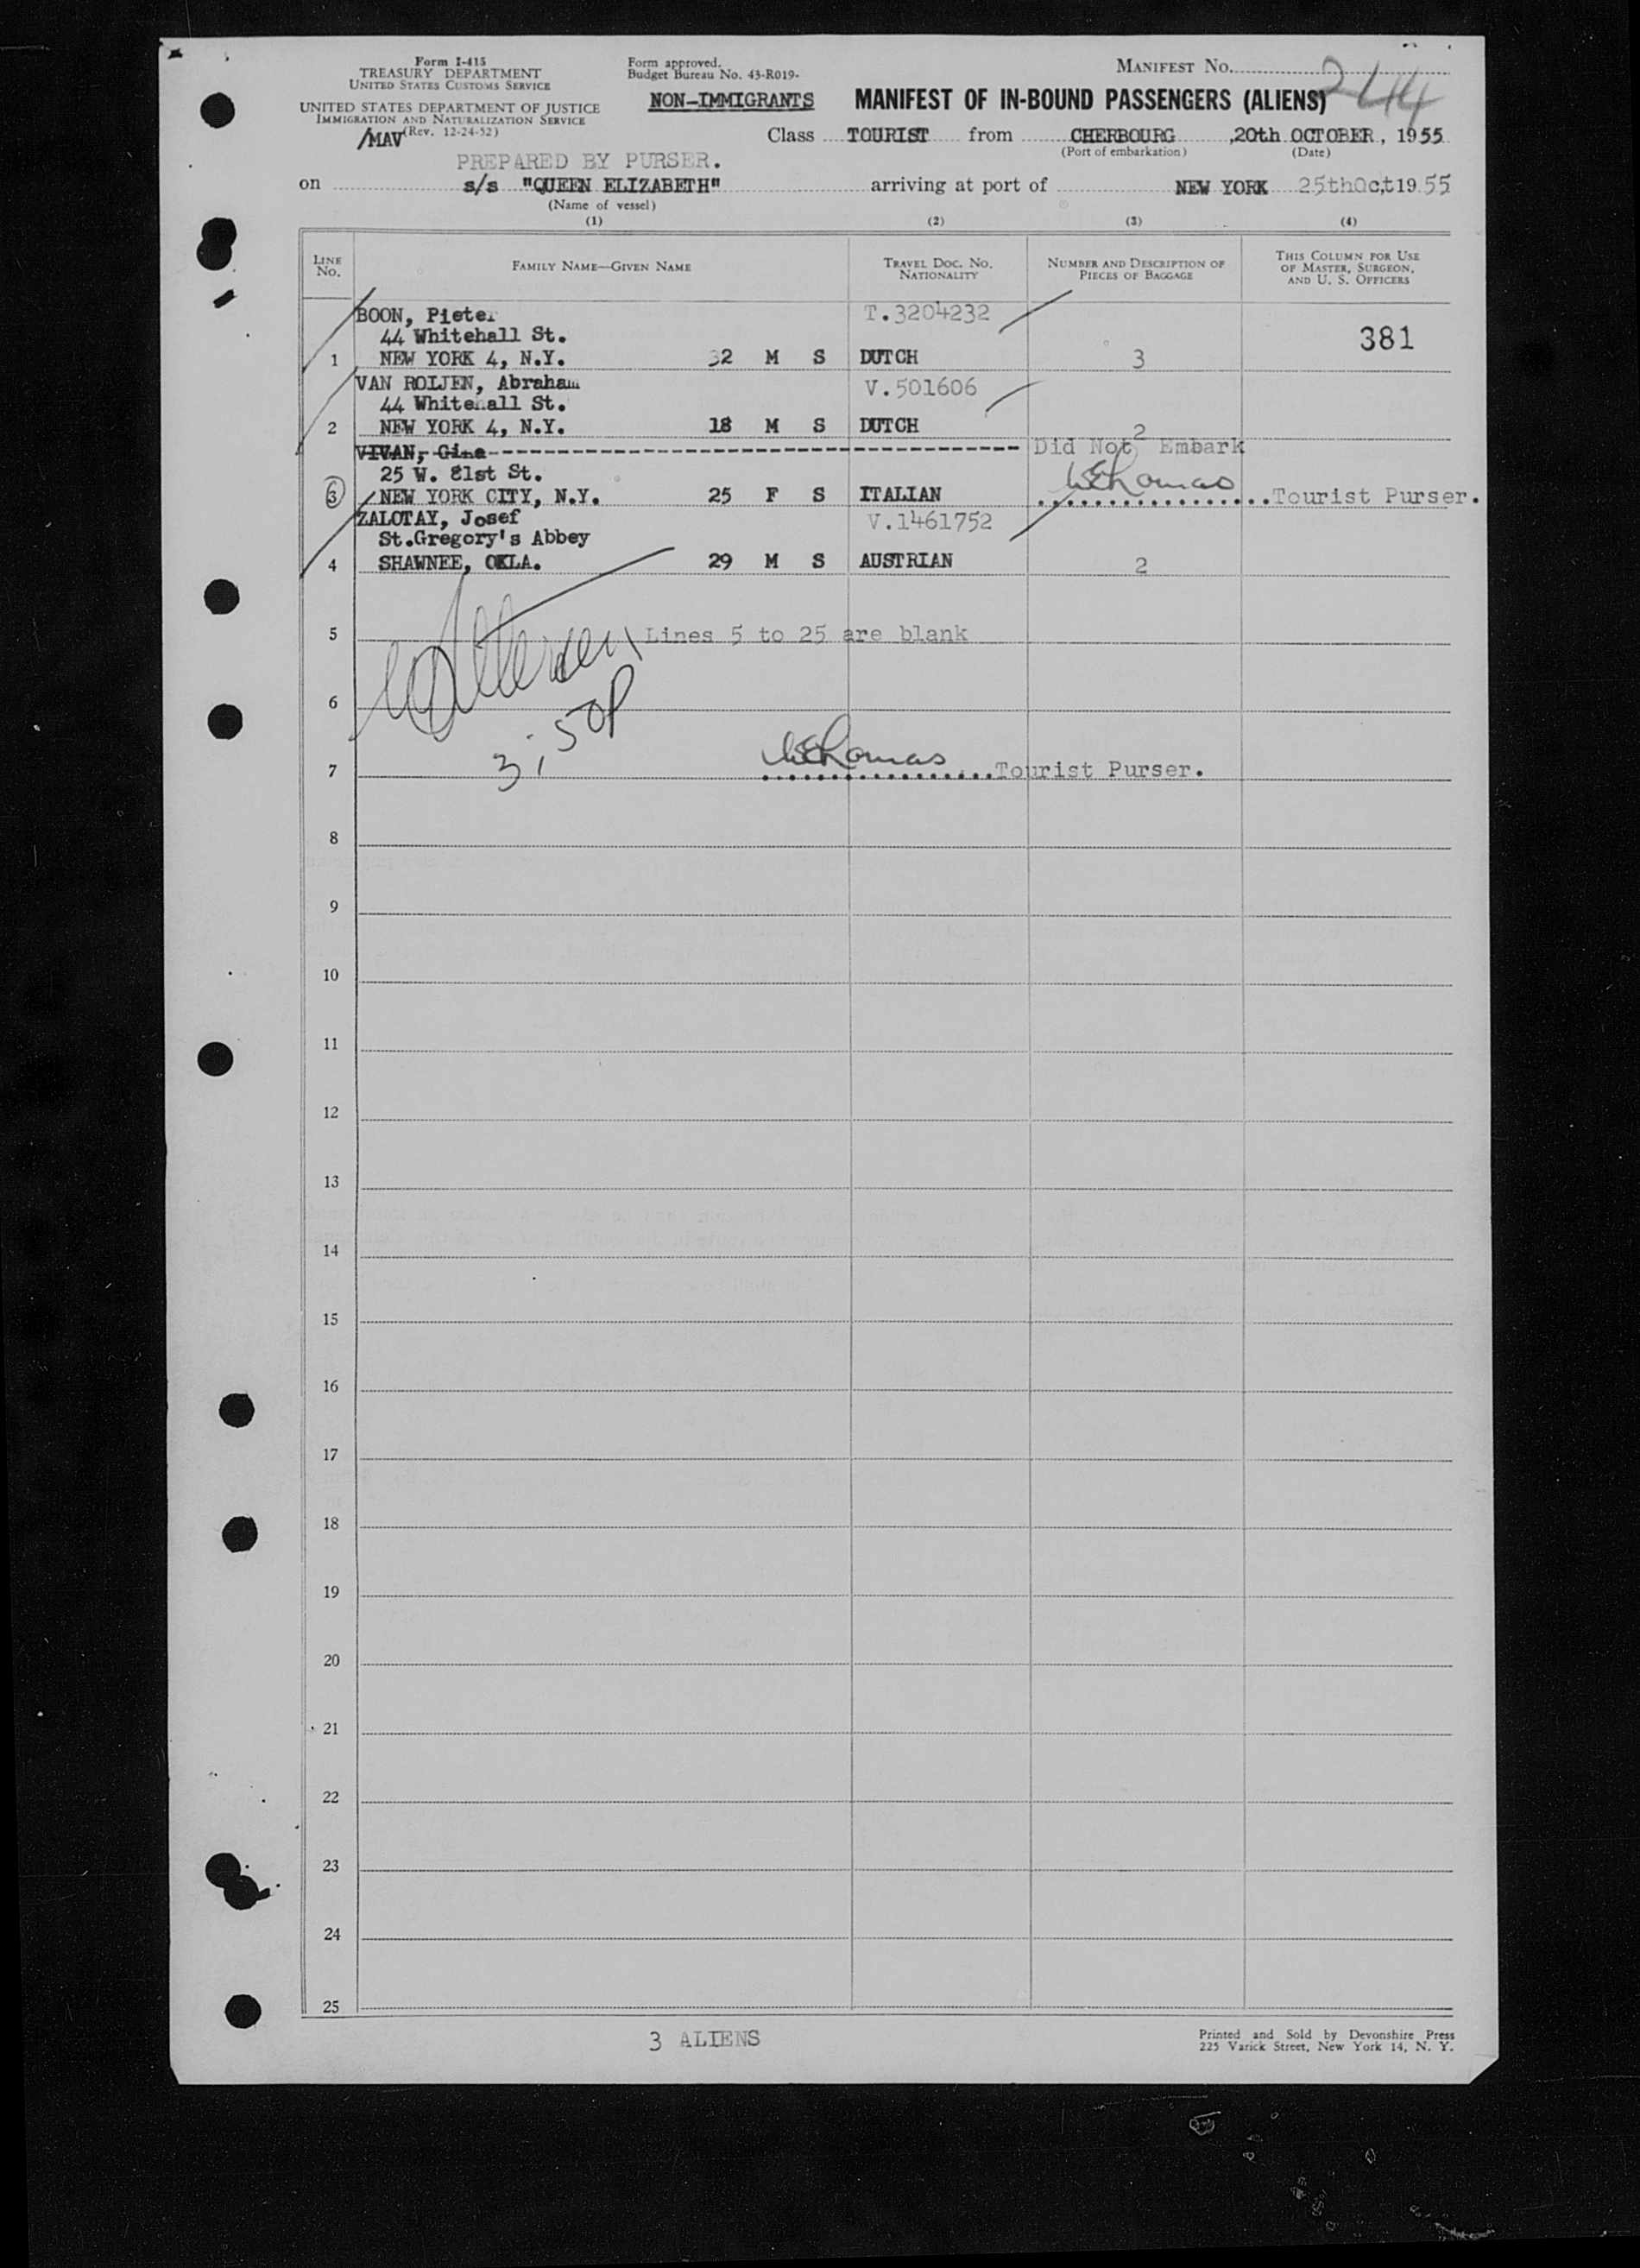 Form I-415
TREASURY DEPARTMENT
UNITED STATES CUSTOMS SERVICE
UNITED STATES DEPARTMENT OF JUSTICE
IMMIGRATION AND NATURALIZATION SERVICE
(Rev. 12-24-52)
/MAV
Form approved.
Budget Bureau No. 43-R019-
MANIFEST No. 244
NON-IMMIGRANTS MANIFEST OF IN-BOUND PASSENGERS (ALIENS)
Class TOURIST from CHERBOURG, 20th OCTOBER, 1955
(Port of embarkation) (Date)
PREPARED BY PURSER.
on s/s "QUEEN ELIZABETH" arriving at port of NEW YORK 25thOct,1955
(Name of vessel)
(1) (2) (3) (4)
LINE No. FAMILY NAME—GIVEN NAME TRAVEL DOC. NO. NATIONALITY NUMBER AND DESCRIPTION OF PIECES OF BAGGAGE THIS COLUMN FOR USE OF MASTER, SURGEON, AND U. S. OFFICERS
BOON, Pieter T.3204232
44 Whitehall St. 381
1 NEW YORK 4, N.Y. 32 M S DUTCH 3
VAN ROIJEN, Abraham V.501606
44 Whitehall St.
2 NEW YORK 4, N.Y. 18 M S DUTCH 2
VIVAN, Gina Did Not Embark
25 W. 81st St.
3 NEW YORK CITY, N.Y. 25 F S ITALIAN Tourist Purser.
ZALOTAY, Josef V.1461752
St.Gregory's Abbey
4 SHAWNEE, OKLA. 29 M S AUSTRIAN 2
5 Lines 5 to 25 are blank
6
3:50P
7 Tourist Purser.
8
9
10
11
12
13
14
15
16
17
18
19
20
21
22
23
24
25
3 ALIENS
Printed and Sold by Devonshire Press
225 Varick Street, New York 14, N. Y.